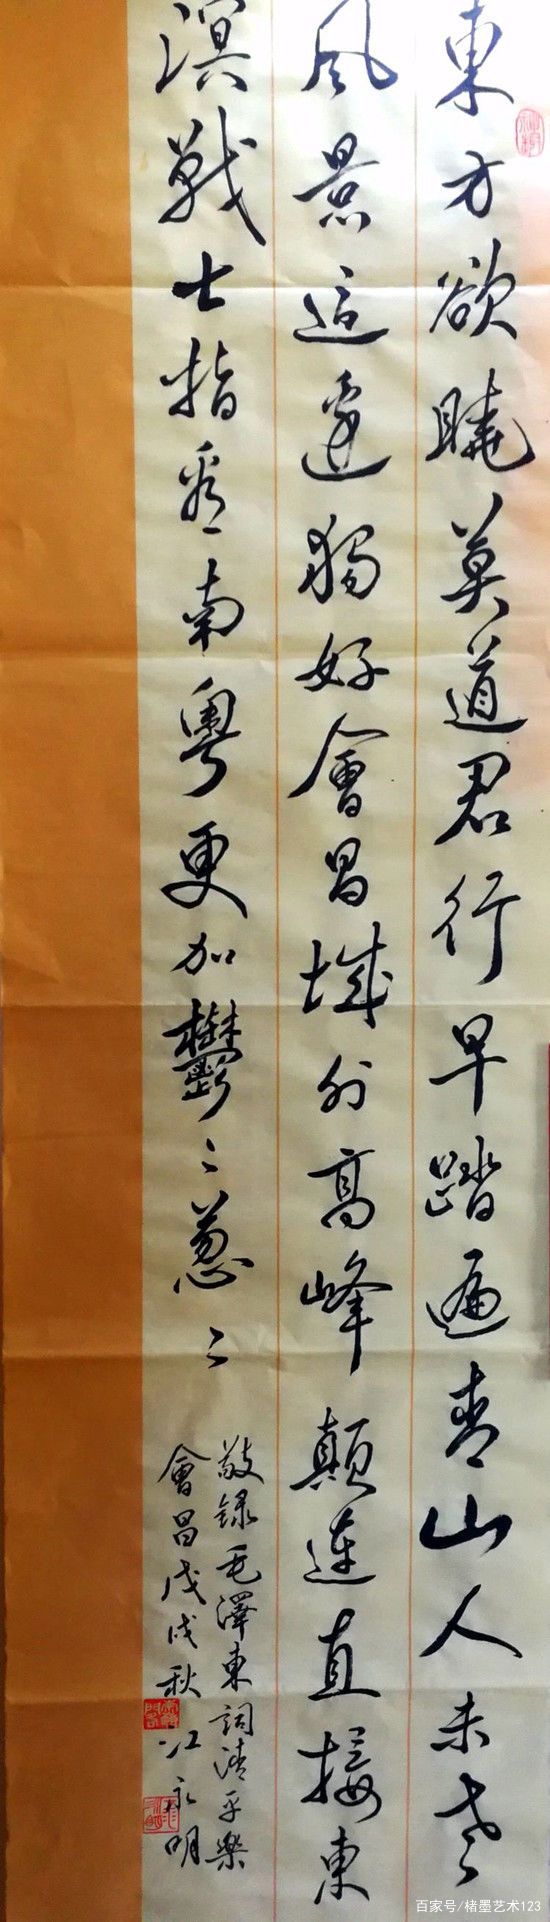 東方欲曉莫道君行早踏遍青山人未老
風景這邊獨好會昌城外高峰顛連直接東
溟戰士指看南粵更加鬱〻蔥〻
敬録毛澤東詞清平樂
會昌戊戌秋江永明
百家号/楮墨艺术123